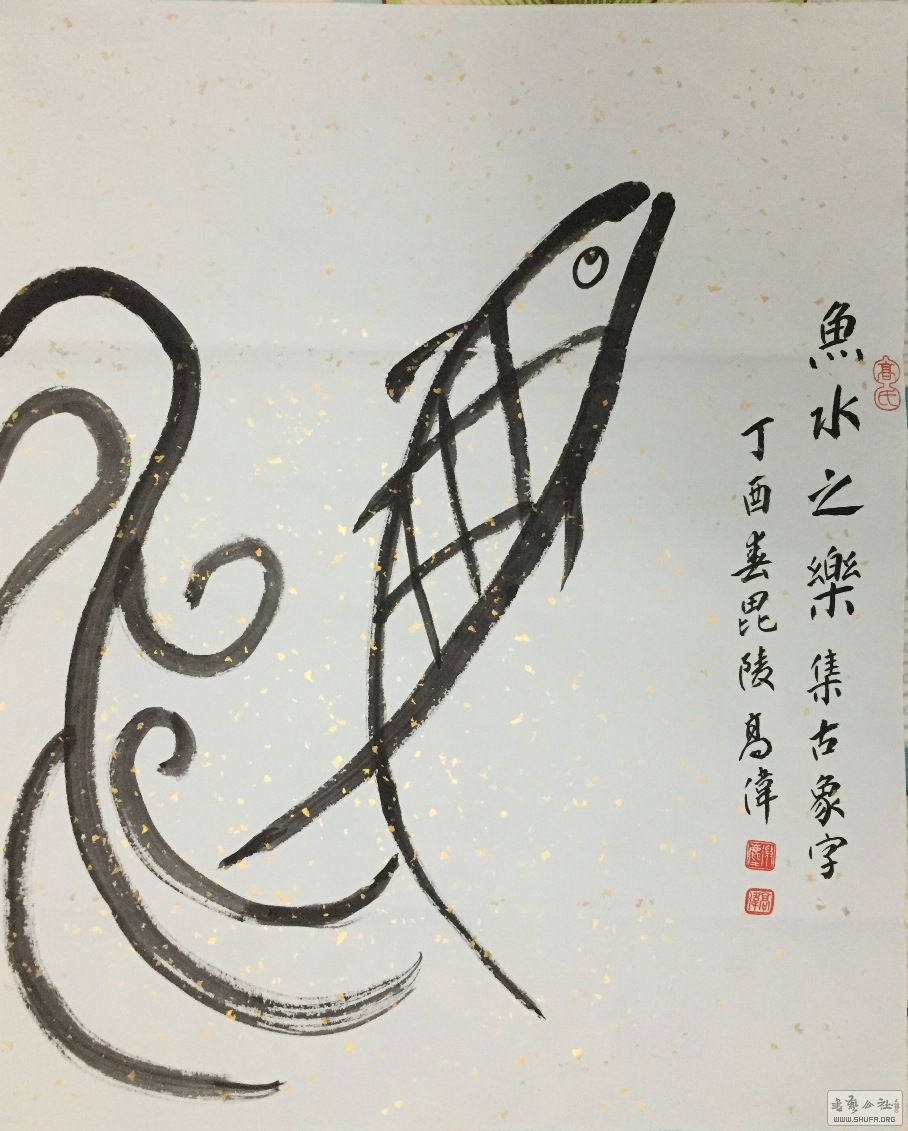 魚水之樂 集古象字
丁酉春毘陵高偉
高氏
高偉
WWW.SHUFA.ORG